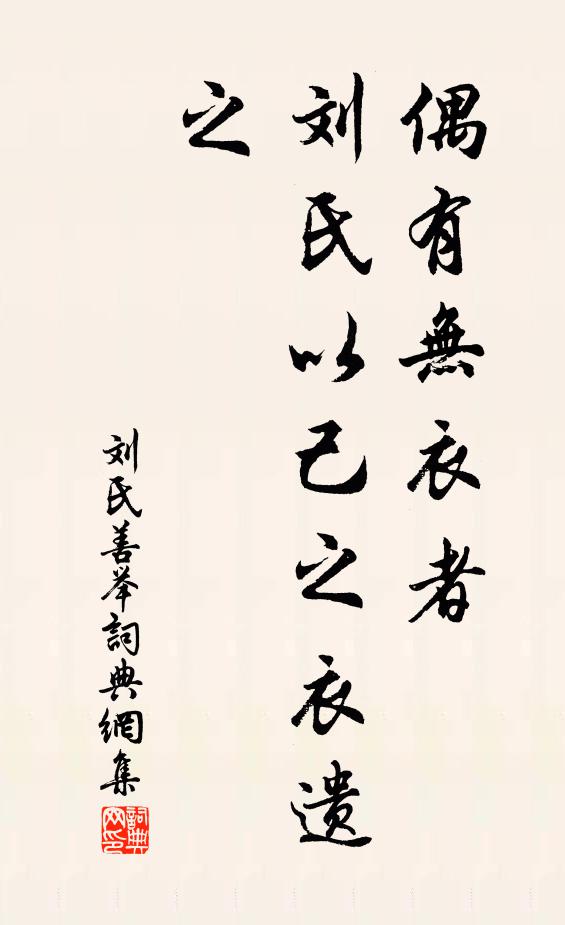 偶有無衣者
刘氏以己之衣遗
之
刘氏善举詞典網集
詞典
网印